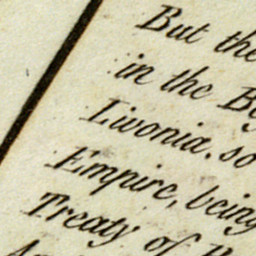 But the
in the
Livonia, so
Empire, being
Treaty of